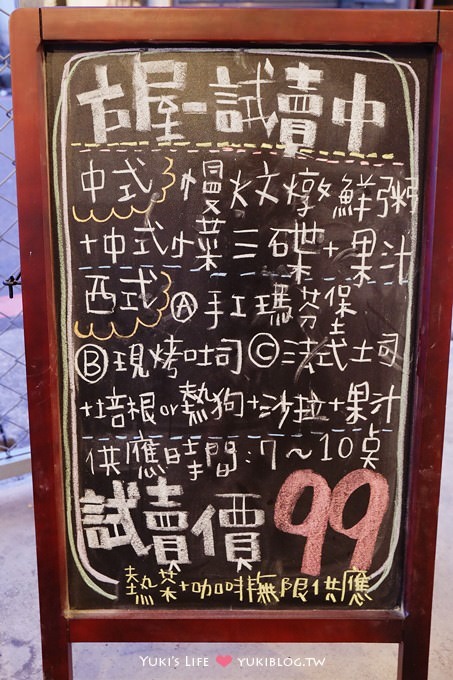 古屋-試賣中
中式 慢炆燉鮮粥
+中式小菜三碟+果汁
西式 Ⓐ手工瑪芬堡
Ⓑ現烤吐司Ⓒ法式土司
+培根or熱狗+沙拉+果汁
供應時間:7~10點
試賣價99
熱茶+咖啡無限供應
YUKI'S LIFE ❤ YUKIBLOG.TW